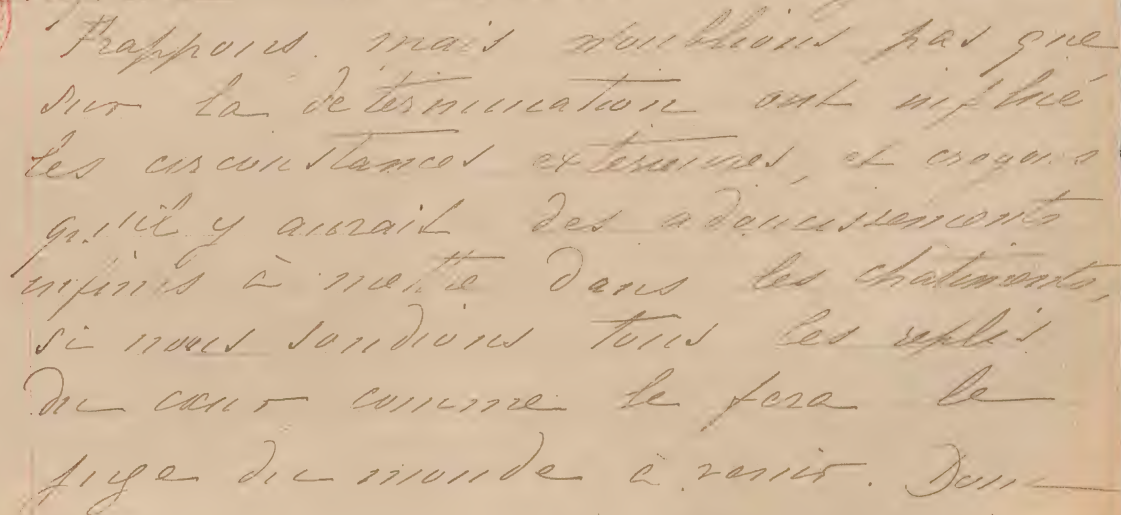 Frappons. mais n'oublions pas que
sur la détermination ont influé
les circonstances externes, et croyons
qu'il y aurait des adoucissements
infinis à mettre dans les chatiments,
si nous sondions tous les replis
du cœur comme le fera le
juge du monde à venir. Donc